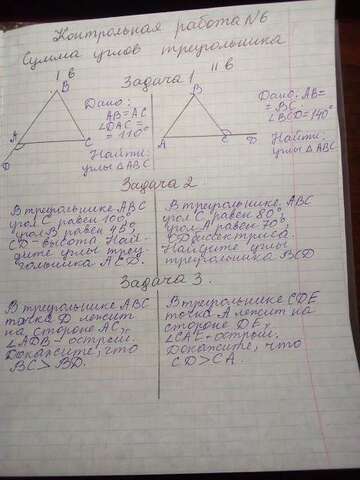 Контрольная работа №6
Сумма углов треугольника
I в
II в
Задача 1
B
A
C
D
Дано:
AB=AC
∠DAC=
=110°
Найти:
углы △ABC
B
A
C
D
Дано: AB=
=BC
∠BCD=140°
Найти:
углы △ABC
Задача 2
В треугольнике ABC
угол C равен 100°
угол B равен 45°
CD-высота Най-
дите углы треу-
гольника ACD.
В треугольнике ABC
угол C равен 80°
угол A равен 70°
CD биссектриса
Найдите углы
треугольника BCD
Задача 3.
В треугольнике ABC
точка D лежит
на стороне AC,
∠ADB - острый.
Докажите, что
BC > BD.
В треугольнике CDE
точка A лежит на
стороне DE,
∠CAE - острый.
Докажите, что
CD > CA